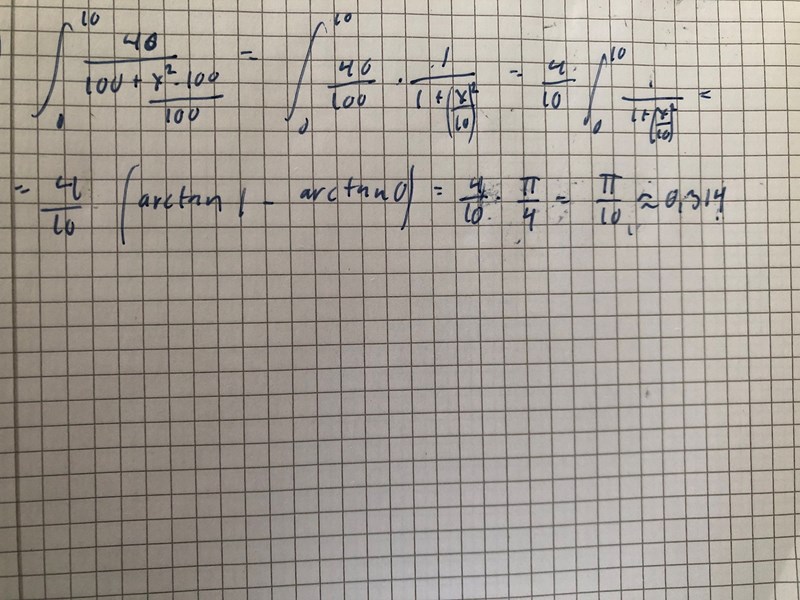 ∫₀¹⁰ 40/(100 + (x²·100)/100) = ∫₀¹⁰ 40/100 · 1/(1+(x/10)²) = 4/10 ∫₀¹⁰ 1/(1+(x/10)²) =
= 4/10 (arctan 1 − arctan 0) = 4/10 · π/4 = π/10 ≈ 0,314